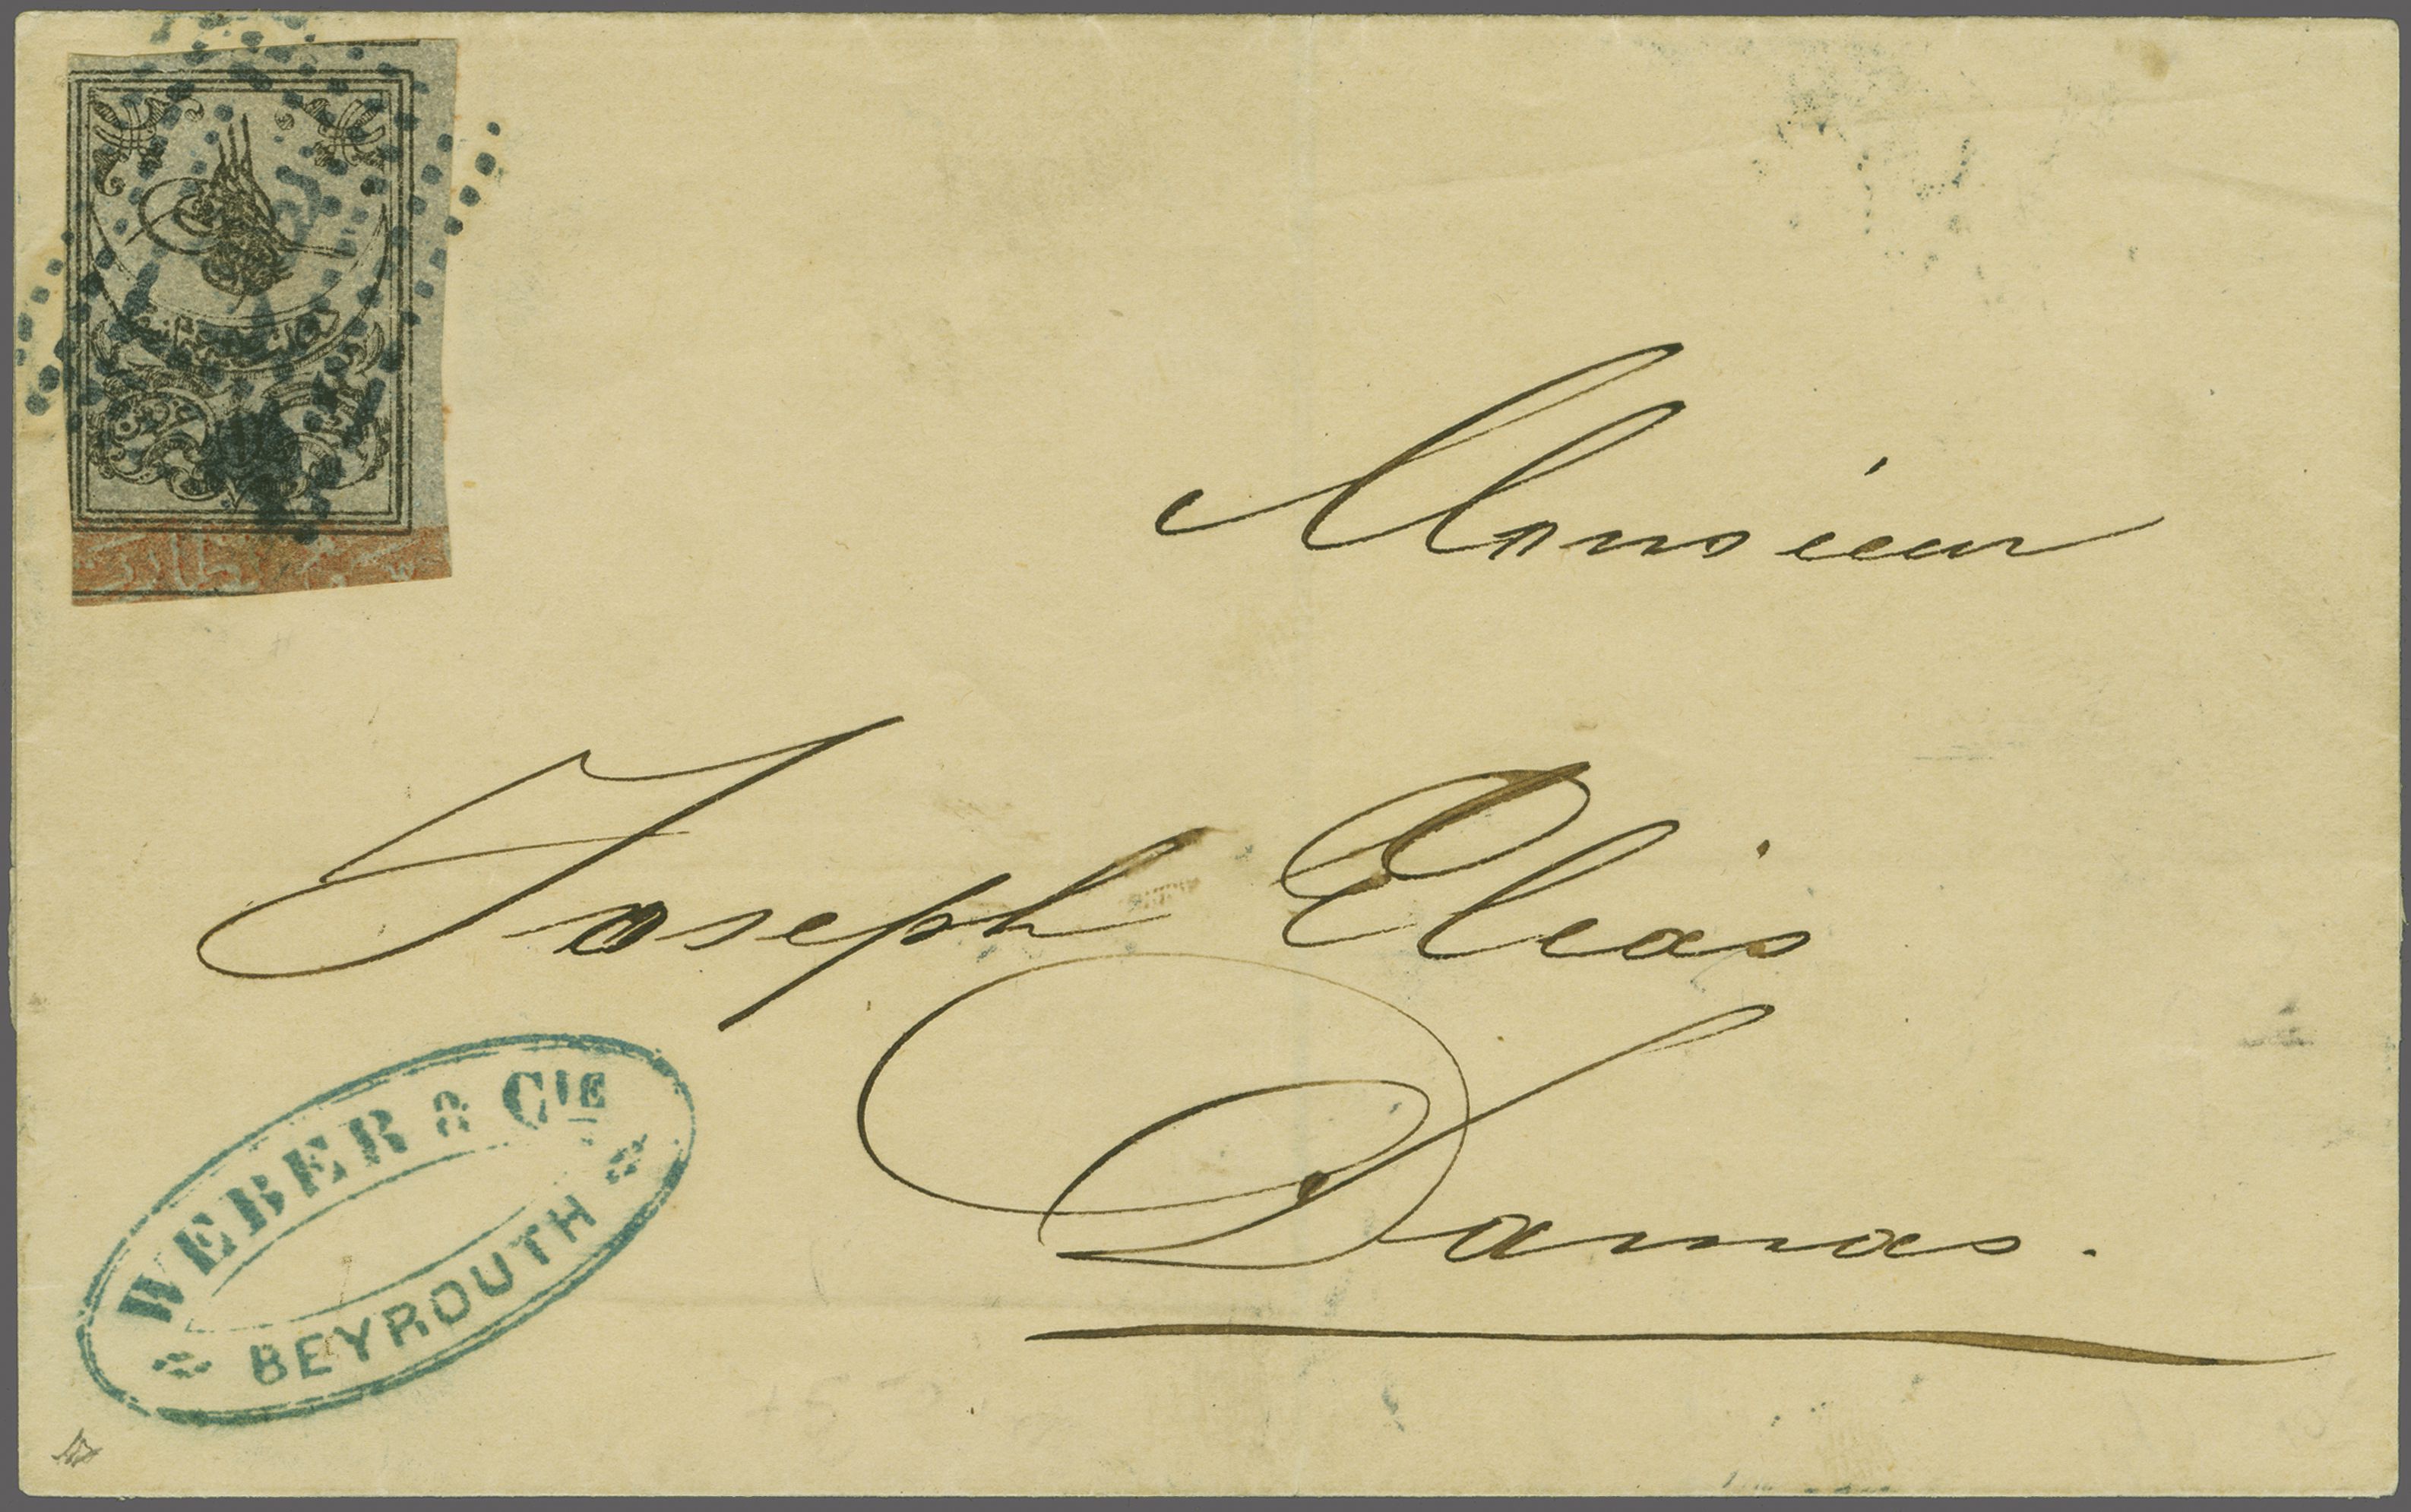 Monsieur
Joseph Elias
Damas.
WEBER & CIE
BEYROUTH